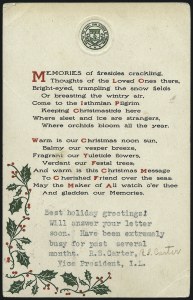 MEMORIES of firesides crackling,
Thoughts of the Loved Ones there,
Bright-eyed, trampling the snow fields
Or breasting the wintry air,
Come to the Isthmian Pilgrim
Keeping Christmastide here
Where sleet and ice are strangers,
Where orchids bloom all the year.
Warm is our Christmas noon sun,
Balmy our vesper breeze,
Fragrant our Yuletide flowers,
Verdant our Festal trees.
And warm is this Christmas Message
To Cherished Friend over the seas.
May the Maker of All watch o'er thee
And gladden our Memories.
Best holiday greetings;
Will answer your letter
soon. Have been extremely
busy for past several
months. R.S.Carter,
Vice President, I.L.